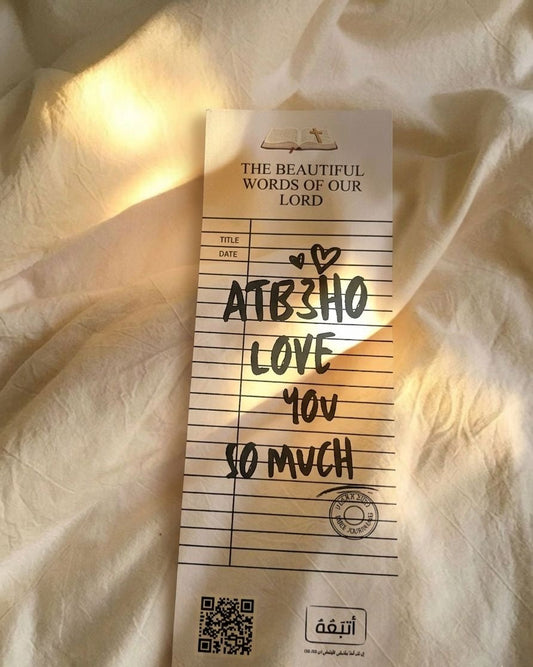 THE BEAUTIFUL
WORDS OF OUR
LORD
TITLE
DATE
ATB3HO
LOVE
YOU
SO MUCH
BIBLE JOURNALING
أتبَعُهُ